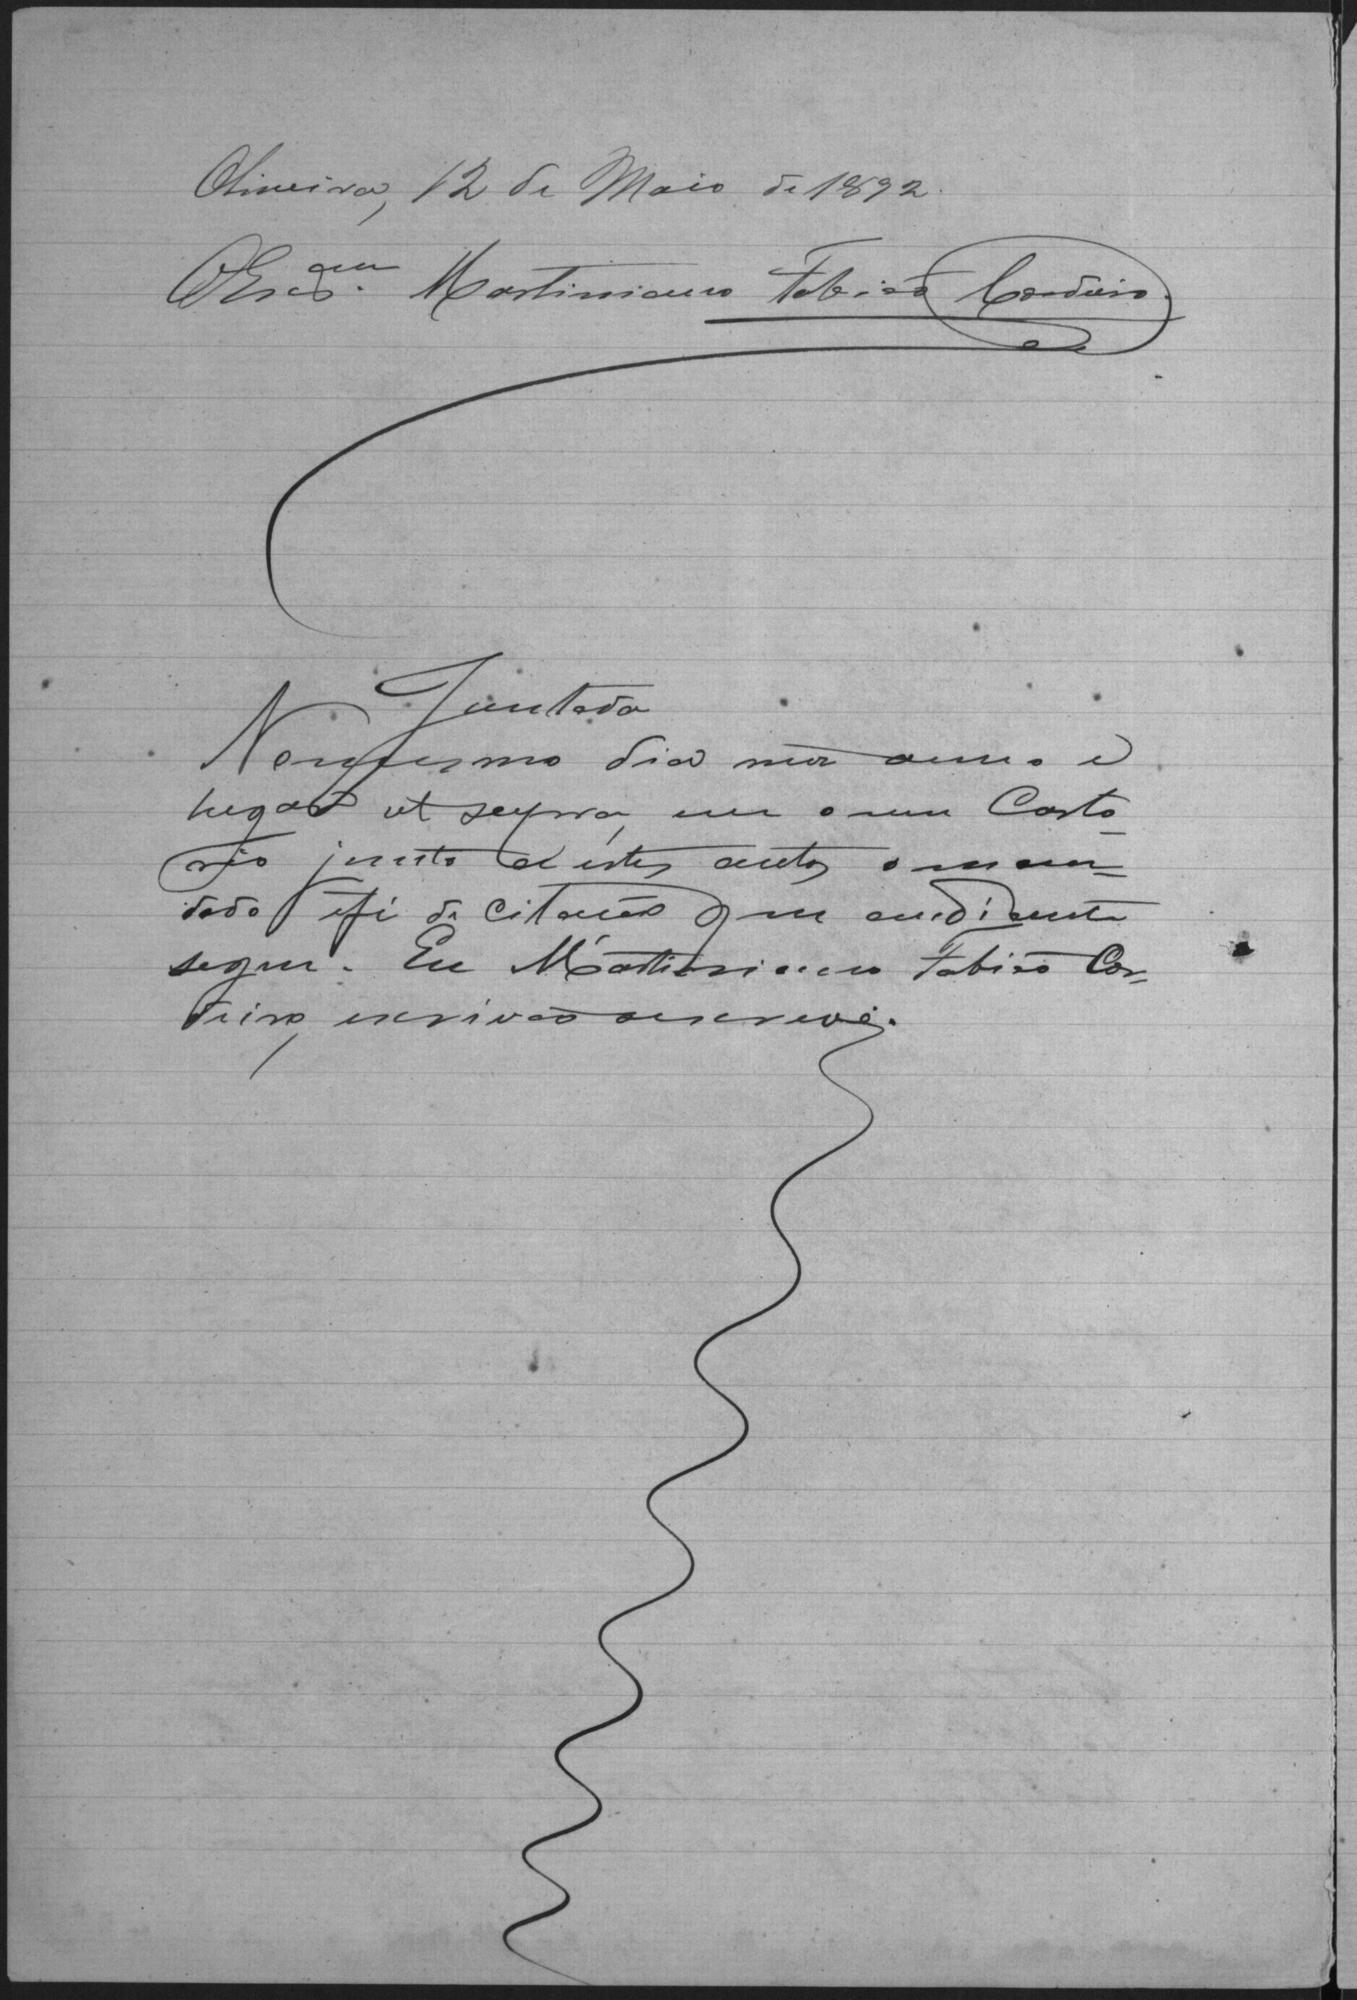 Oliveira, 12 de Maio de 1892.
O Escam. Martiniano Fabião Cordeiro.
Juntada
No mesmo dia mez anno e
lugar ut supra, em o meu Carto-
rio junto a éstes autos o man-
dado e fé de citação que em diante
segue. Eu Martiniano Fabião Cor-
deiro, escrivão o escrevi.